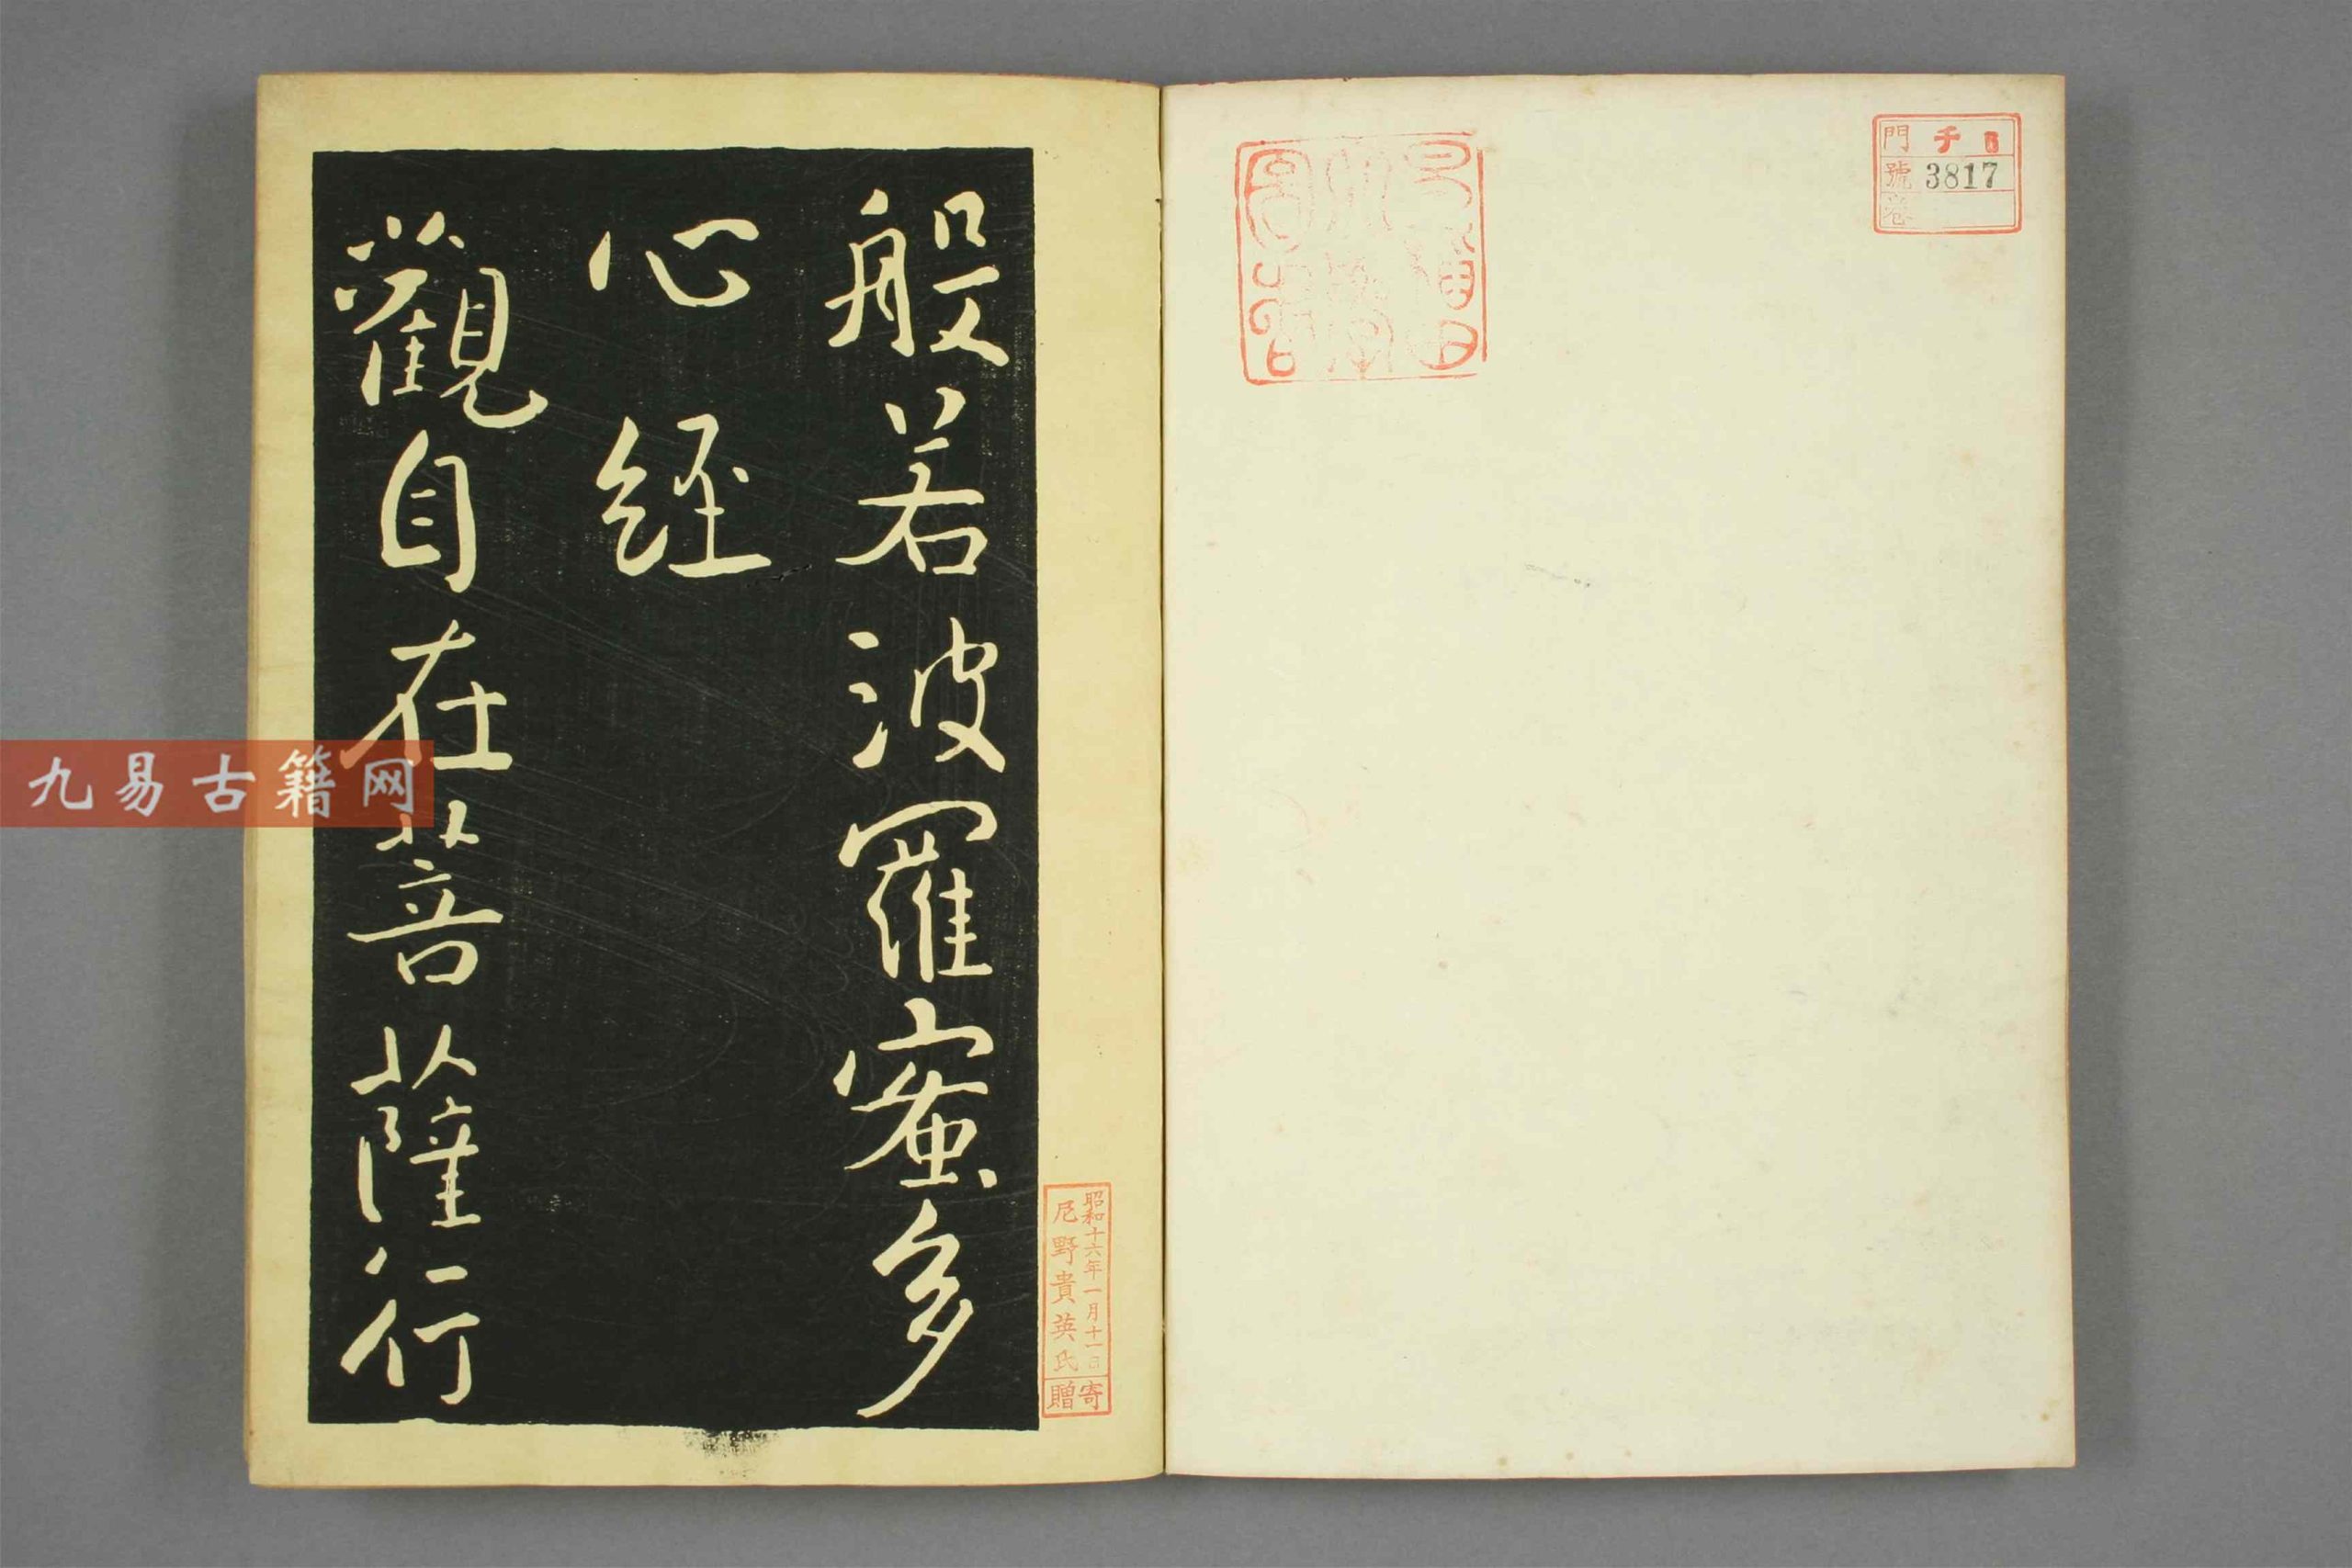 般若波羅蜜多
心経
觀自在菩薩行
昭和十六年一月十一日
尼野貴英氏
寄贈
門 チ 6
號 3817
卷
九易古籍网